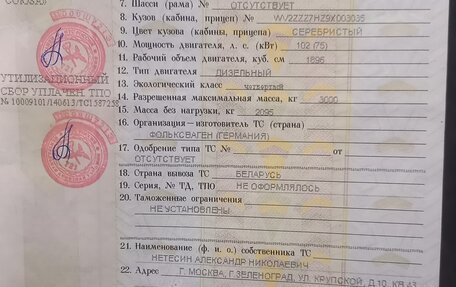 СОЮЗА
7. Шасси (рама) № ОТСУТСТВУЕТ
8. Кузов (кабина, прицеп) № WV2ZZZ7HZ9X003035
9. Цвет кузова (кабины, прицепа) СЕРЕБРИСТЫЙ
10. Мощность двигателя, л. с. (кВт) 102 (75)
11. Рабочий объем двигателя, куб. см 1896
12. Тип двигателя ДИЗЕЛЬНЫЙ
13. Экологический класс четвертый
14. Разрешенная максимальная масса, кг 3000
15. Масса без нагрузки, кг 2095
16. Организация–изготовитель ТС (страна)
ФОЛЬКСВАГЕН (ГЕРМАНИЯ)
17. Одобрение типа ТС № от
ОТСУТСТВУЕТ
18. Страна вывоза ТС БЕЛАРУСЬ
19. Серия, № ТД, ТПО НЕ ОФОРМЛЯЛОСЬ
20. Таможенные ограничения
НЕ УСТАНОВЛЕНЫ
21. Наименование (ф. и. о.) собственника ТС
НЕТЕСИН АЛЕКСАНДР НИКОЛАЕВИЧ
22. Адрес Г. МОСКВА, Г.ЗЕЛЕНОГРАД, УЛ. КРУПСКОЙ, Д.10, КВ.43
УТИЛИЗАЦИОННЫЙ
СБОР УПЛАЧЕН ТПО
№ 10009101/140613/ТС1587258